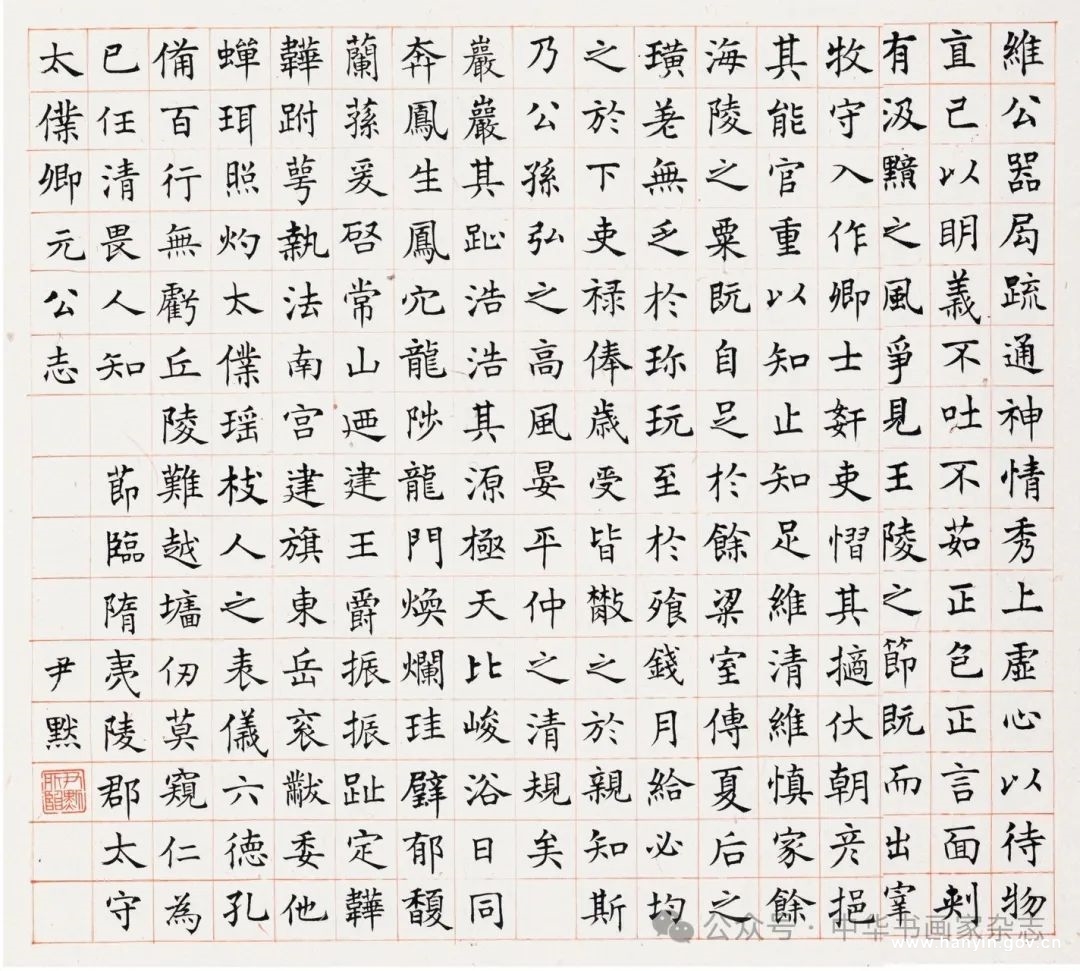 維公器局疏通神情秀上虛心以待物
直己以明義不吐不茹正色正言面刾
有汲黯之風爭見王陵之節既而出宰
牧守入作卿士奸吏慴其擿伏朝彦挹
其能官重以知止知足維清維慎家餘
海陵之粟既自足於餘粱室傳夏后之
璜羗無乏於珎玩至於飱錢月給必均
之於下吏禄俸歲受皆散之於親知斯
乃公孫弘之高風晏平仲之清規矣
巖巖其趾浩浩其源極天比峻浴日同
奔鳳生鳳穴龍陟龍門煥爛珪璧郁馥
蘭蓀爰啓常山迺建王爵振振趾定韡
韡跗萼執法南宮建旗東岳衮黻委他
蟬珥照灼太僕瑶枝人之表儀六德孔
備百行無虧丘陵難越墻仞莫窺仁為
己任清畏人知 節臨隋夷陵郡太守
太僕卿元公志 尹默
公众号·中华书画家杂志
www.hanyin.gov.cn